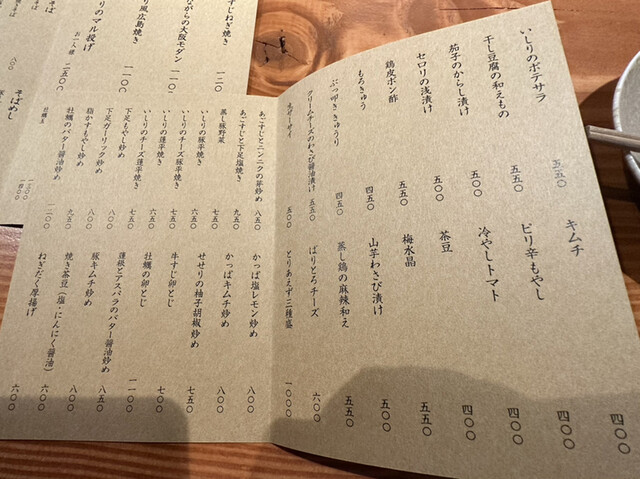 いしりのポテサラ 五五〇
干し豆腐の和えもの 五五〇
茄子のからし漬け 五〇〇
セロリの浅漬け 五〇〇
鶏皮ポン酢 五五〇
もろきゅう 四五〇
ぶつ叩ききゅうり 四五〇
クリームチーズのわさび醤油漬け 五五〇
五〇〇
キムチ 四〇〇
ピリ辛もやし 四〇〇
冷やしトマト 四〇〇
茶豆 四〇〇
梅水晶 五五〇
山芋わさび漬け 五〇〇
蒸し鶏の麻辣和え 五五〇
ぱりとろチーズ 六〇〇
とりあえず三種盛 一〇〇〇
あごすじとニンニクの芽炒め 八五〇
あごすじと下足塩焼き 九五〇
蒸し豚野菜
いしりの豚平焼き 六五〇
いしりのチーズ豚平焼き 七五〇
いしりの蓮平焼き 六五〇
いしりのチーズ蓮平焼き 七五〇
下足もやし炒め 八〇〇
下足ガーリック炒め 八〇〇
脂かすもやし炒め 九五〇
牡蠣のバター醤油炒め 一二〇〇
かっぱ塩レモン炒め 八〇〇
かっぱキムチ炒め 八〇〇
せせりの柚子胡椒炒め
牛すじ卵とじ 七〇〇
牡蠣の卵とじ 一一〇〇
蓮根とアスパラのバター醤油炒め 八五〇
豚キムチ炒め 八〇〇
焼き茶豆（塩・にんにく醤油） 六〇〇
ねぎだく厚揚げ 六〇〇
すじねぎ焼き
ながらの大阪モダン
り風広島焼き 一一〇〇
りのマル投げ
お一人様 二五〇〇
そばめし